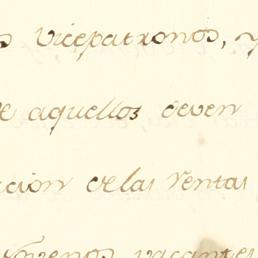 s vicepatronos, y
e aquellos deven
acion de las rentas
Novenos vacantes